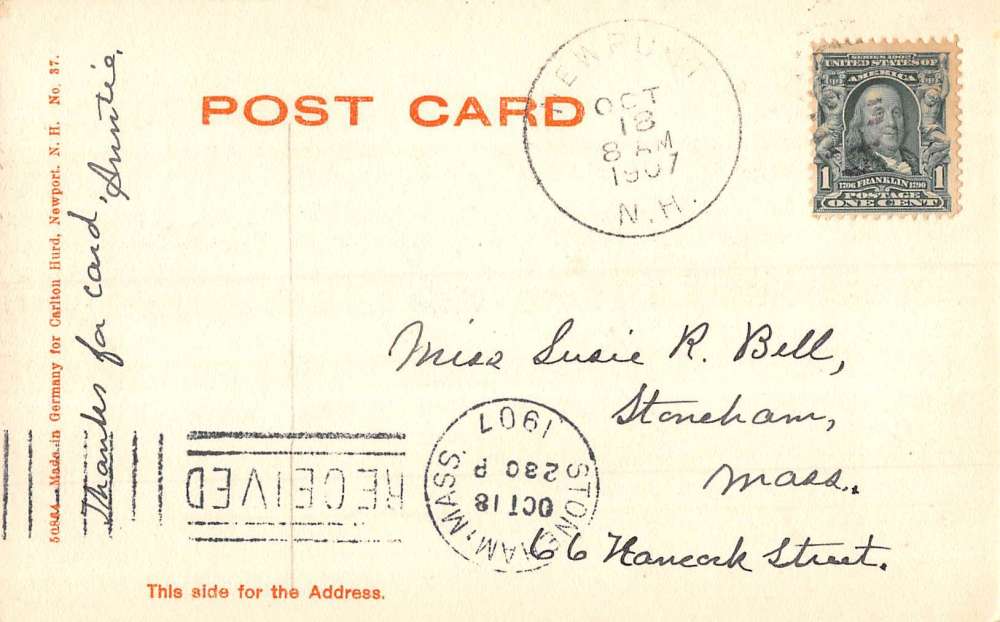 POST CARD
NEWPORT
OCT
18
8 AM
1907
N.H.
SERIES 1902
UNITED STATES OF
AMERICA
1706 FRANKLIN 1790
1 1
POSTAGE
ONE CENT
50884 Made in Germany for Carlton Hurd, Newport, N. H. No. 37.
Thanks for card, Auntie.
Miss Susie R. Bell,
Stoneham,
Mass.
66 Hancock Street.
RECEIVED
STONEHAM, MASS.
OCT 18
230 P
1907
This side for the Address.